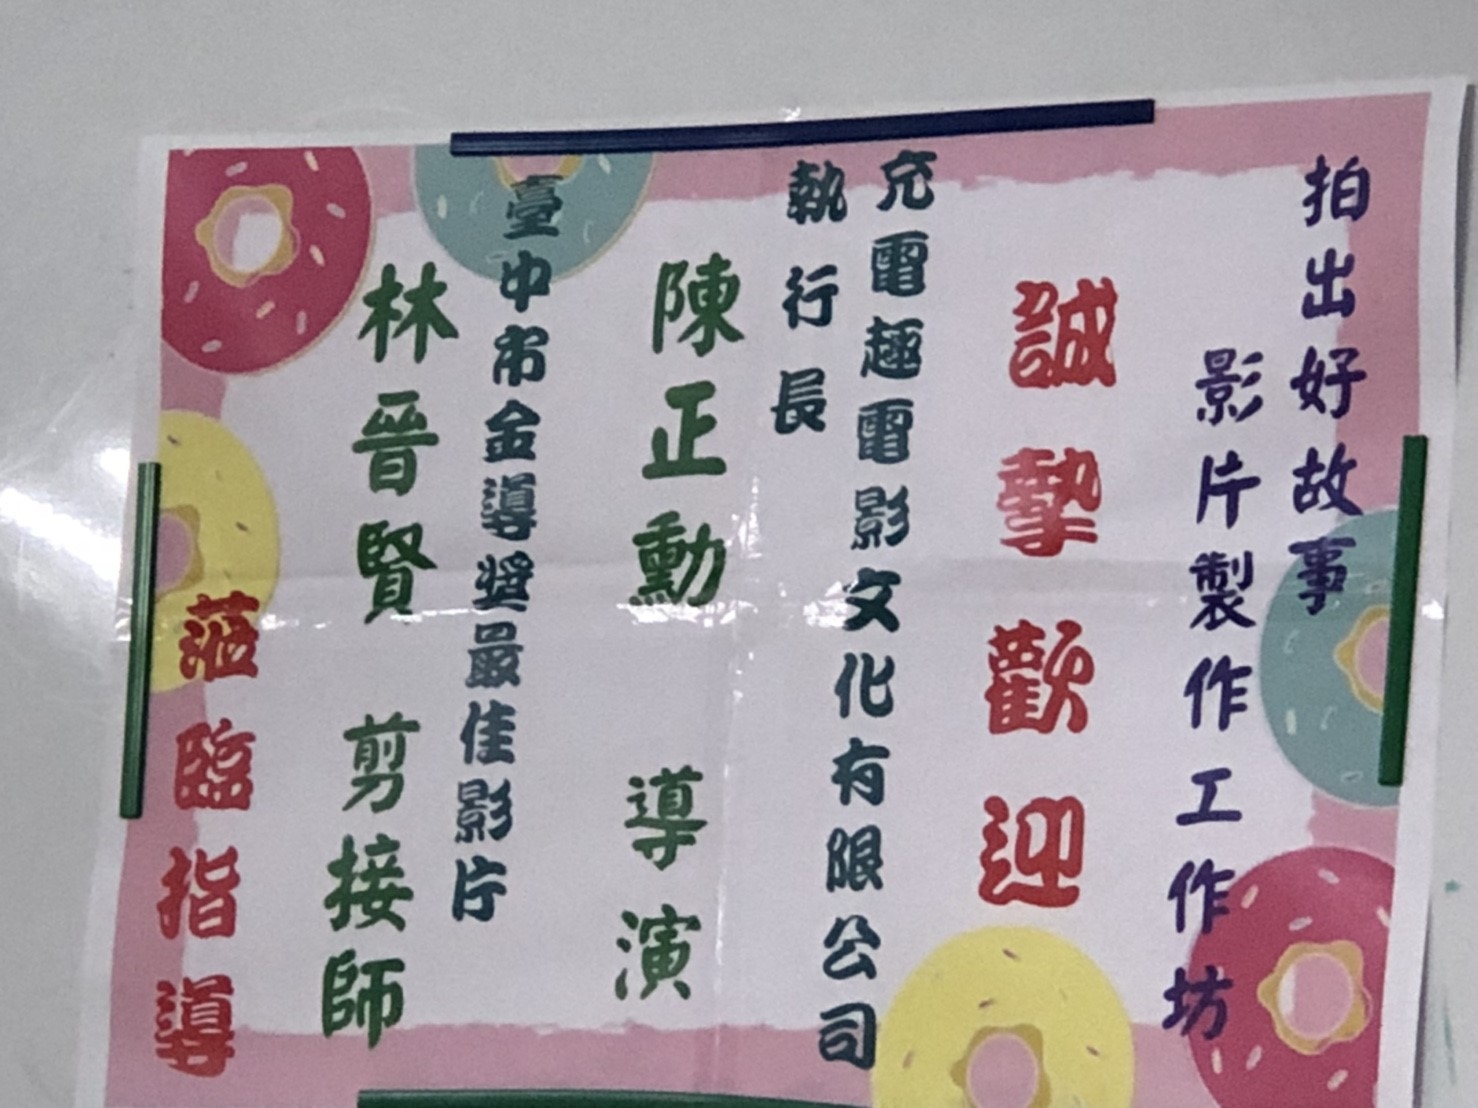 拍出好故事
影片製作工作坊
誠摯歡迎
充電趣電影文化有限公司
執行長
陳正勳 導演
臺中市金導獎最佳影片
林晉賢 剪接師
蒞臨指導